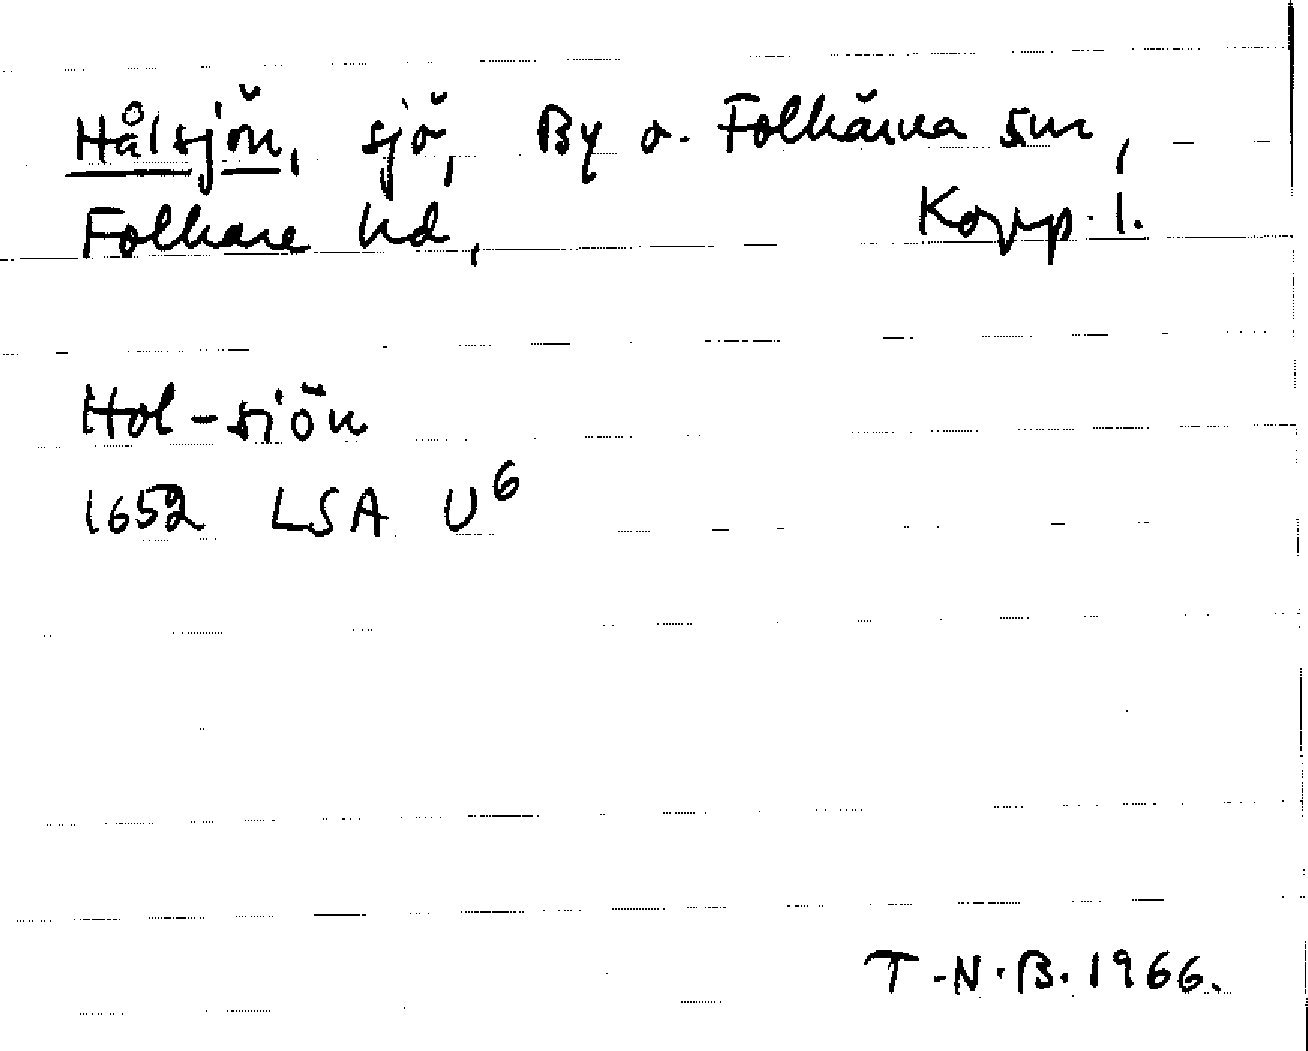 Hålsjön, sjö, By o. Folkärna snr,
Folkare hd, Kopp. l.
Hol-siön
1652 LSA U⁶
T.N.B. 1966.